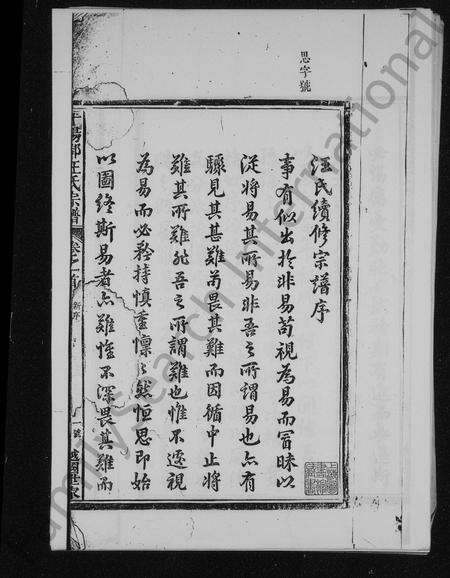 思字號
汪氏續修宗譜序
事有似出於非易苟視為易而冒昧以
從將易其所易非吾之所謂易也亦有
驟見其甚難苟畏其難而因循中止將
難其所難非吾之所謂難也惟不遽視
為易而必矜持慎重懍之然恒思即始
以圖終斯易者亦難惟不深畏其難而
平陽郡汪氏宗譜
卷之首
新序
一
越國世家
Family Search International